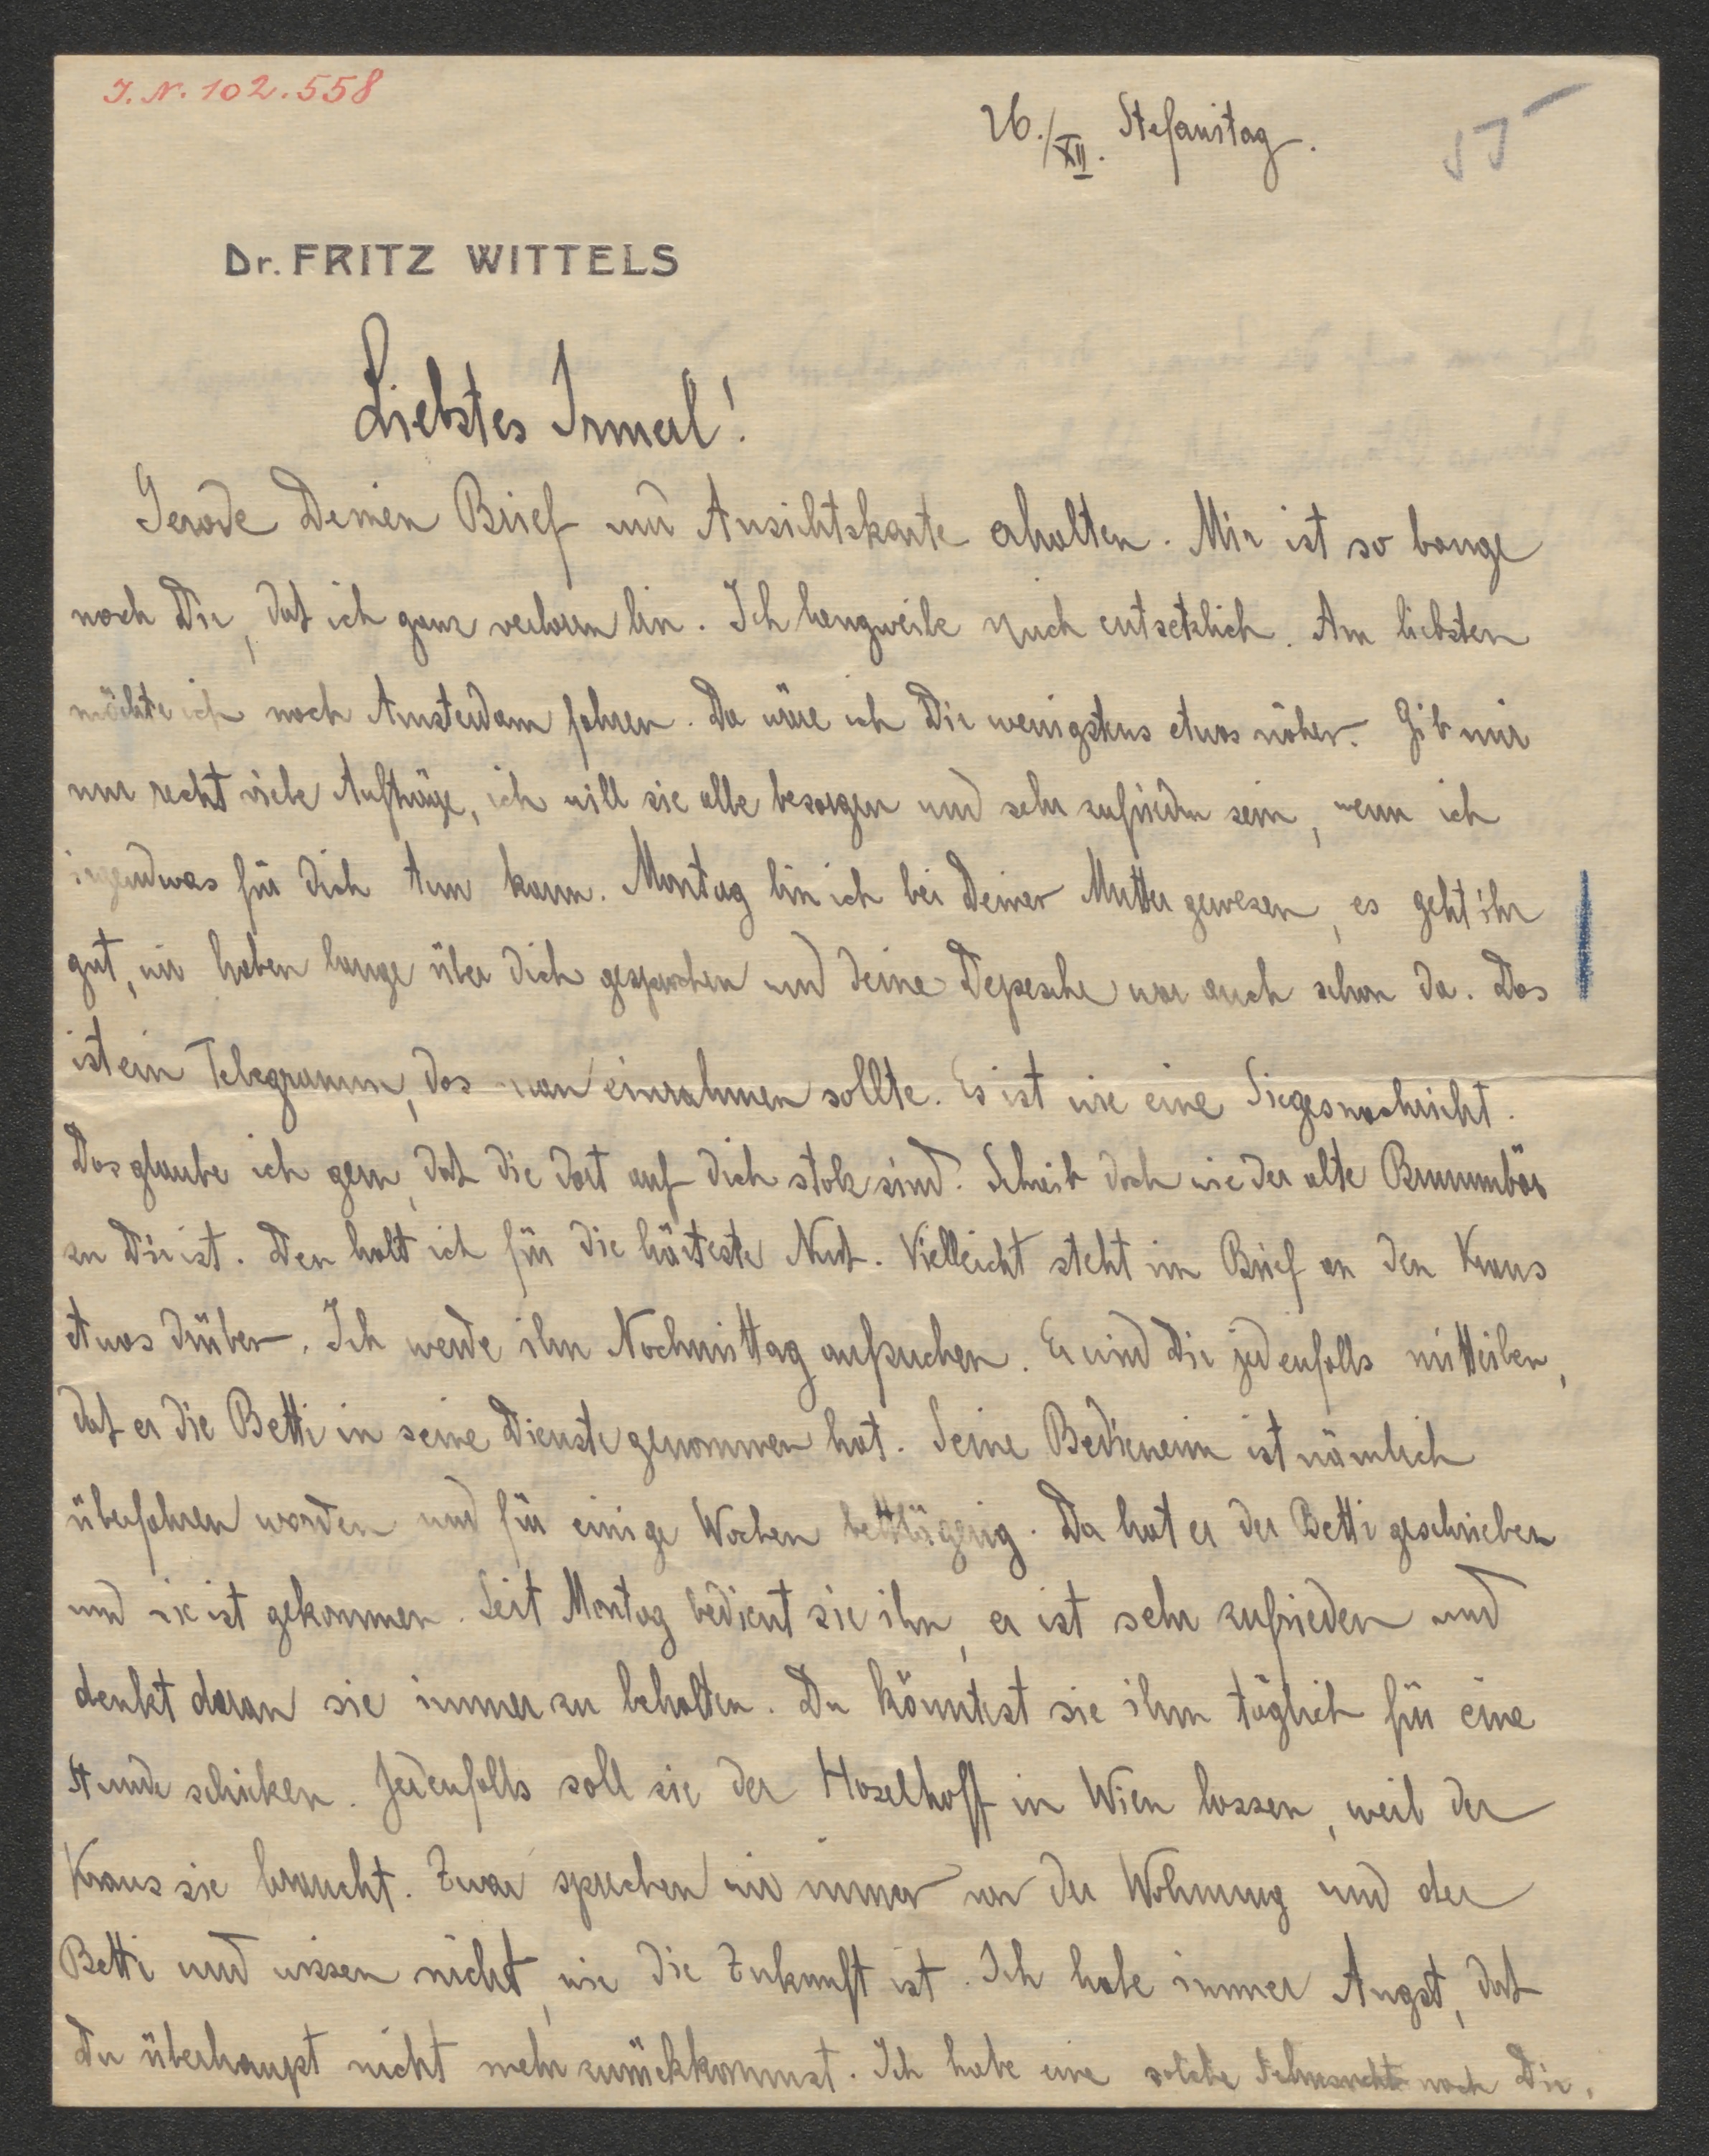 J. N. 102.558
26./XII. Stefanitag.
55
Dr. FRITZ WITTELS
Liebstes Irmerl!
Gerade Deinen Brief und Ansichtskarte erhalten. Mir ist so bange
nach Dir, daß ich ganz verloren bin. Ich langweile mich entsetzlich. Am liebsten
möchte ich nach Amsterdam fahren. Da wäre ich Dir wenigstens etwas näher. Gib mir
nur recht viele Aufträge, ich will sie alle besorgen und sehr zufrieden sein, wenn ich
irgendwas für dich tun kann. Montag bin ich bei Deiner Mutter gewesen, es geht ihr
gut, wir haben lange über dich gesprochen und deine Depesche war auch schon da. Das
ist ein Telegramm, das man einrahmen sollte. Es ist wie eine Siegesnachricht.
Das glaube ich gern, daß die dort auf dich stolz sind. Schreib doch wie der alte Brummbär
zu Dir ist. Den halt ich für die härteste Nuß. Vielleicht steht im Brief an den Kraus
etwas drüber. Ich werde ihn Nachmittag aufsuchen. Er wird Dir jedenfalls mitteilen,
daß er die Betti in seine Dienste genommen hat. Seine Bedienerin ist nämlich
überfahren worden und für einige Wochen bettlägerig. Da hat er der Betti geschrieben
und sie ist gekommen. Seit Montag bedient sie ihn, er ist sehr zufrieden und
denkt daran sie immer zu behalten. Du könntest sie ihm täglich für eine
Stunde schicken. Jedenfalls soll sie der Haselhoff in Wien lassen, weil der
Kraus sie braucht. Zwar sprechen wir immer von der Wohnung und der
Betti und wissen nicht, wie die Zukunft ist. Ich habe immer Angst, daß
Du überhaupt nicht mehr zurückkommst. Ich habe eine solche Sehnsucht nach Dir,